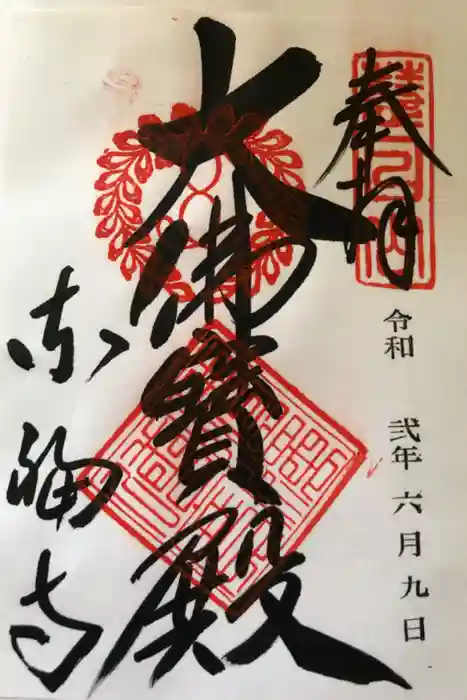 奉拝
令和 弐年 六月 九日
大佛寶殿
東福寺